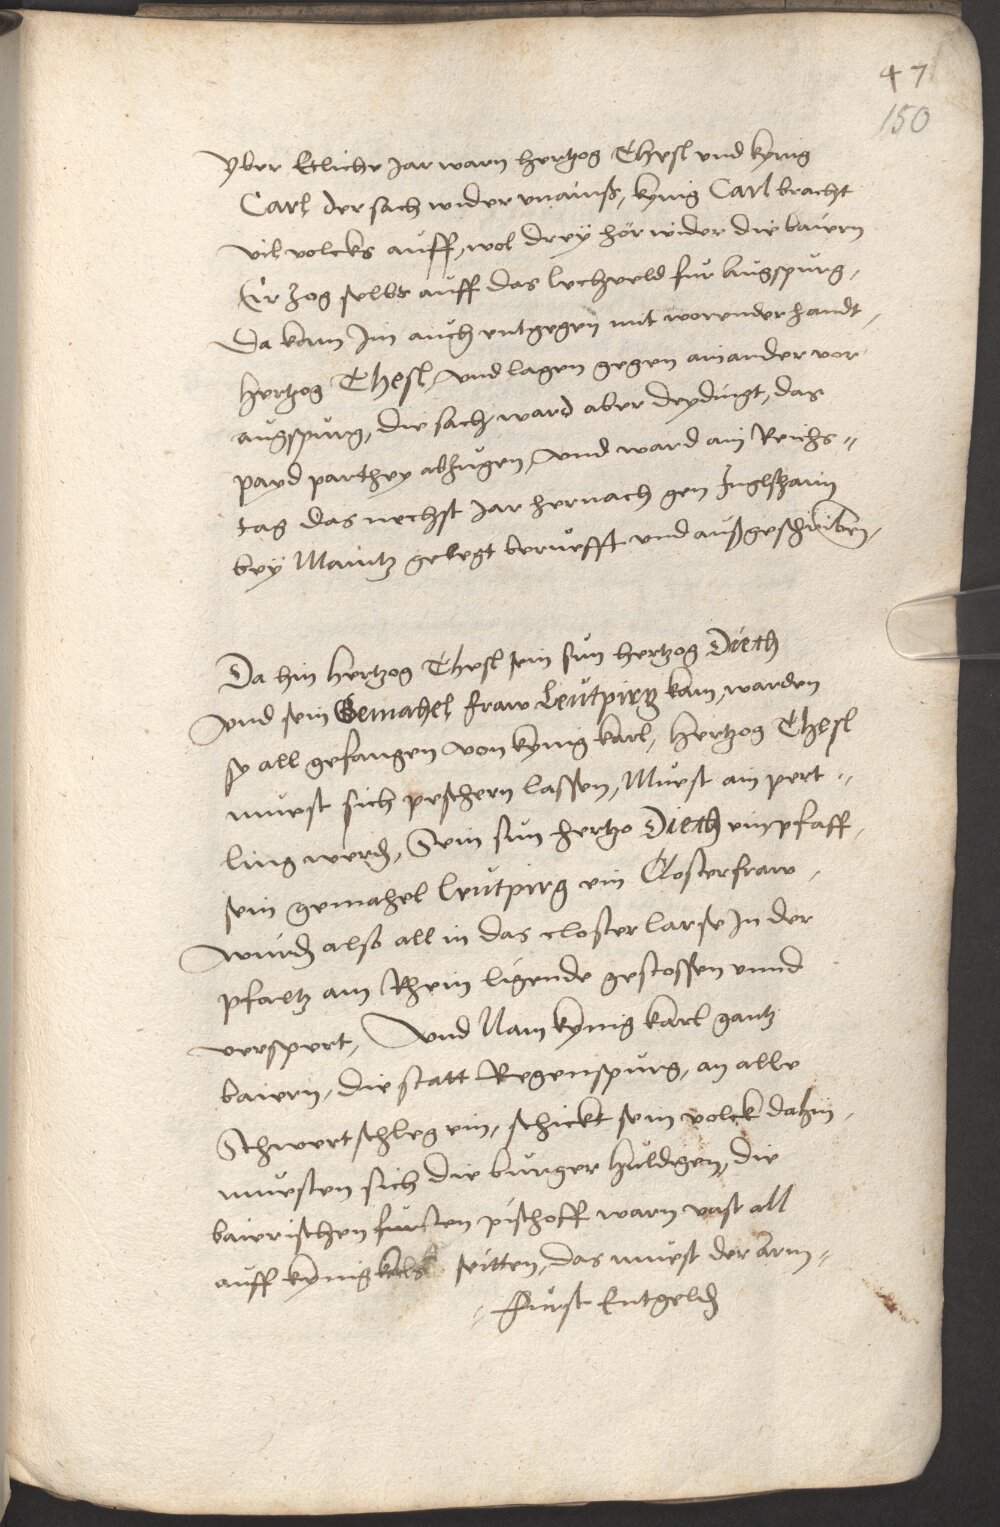 47
150
Yber Etliche Jar warn hertzog Thesl und kynig
Carl der sach wider unainss, kynig Carl bracht
vil volcks auff, wol drey hör wider die baiern
Er zog selbs auff das lechveld fur augspurg,
Da kam Im auch entgegen mit werender handt,
hertzog Thesl, und lagen gegen ainander vor
augspurg, die sach ward aber deydingt, das
payd parthey abzugen, und ward ain Reichs=
tag das nechst Jar hernach gen Inglhaim
bey Maintz gelegt berüefft und außgeschriben,
Da hin hertzog Thesl sein sun hertzog Dieth
und sein Gemahel fraw Leütpirg kam, warden
sy all gefangen von kynig karl, hertzog Thesl
muest sich peschern lassen, Muest ain pert=
ling werdn, Sein sun hertzo Dieth ein pfaff,
sein gemahel Leütpirg ein Closterfraw,
wurdn also all in das closter larse In der
pfaltz am Rhein ligende gestossen unnd
verspert, Und Nam kynig karl gantz
baiern, die statt Regenspurg, an alle
Schwertschleg ein, schickt sein volck dahin,
muesten sich die burger huldigen, die
bairischen fursten pischoff warn vast all
auff kynig karls seitten, das muest der arm=
furst Entgeldn